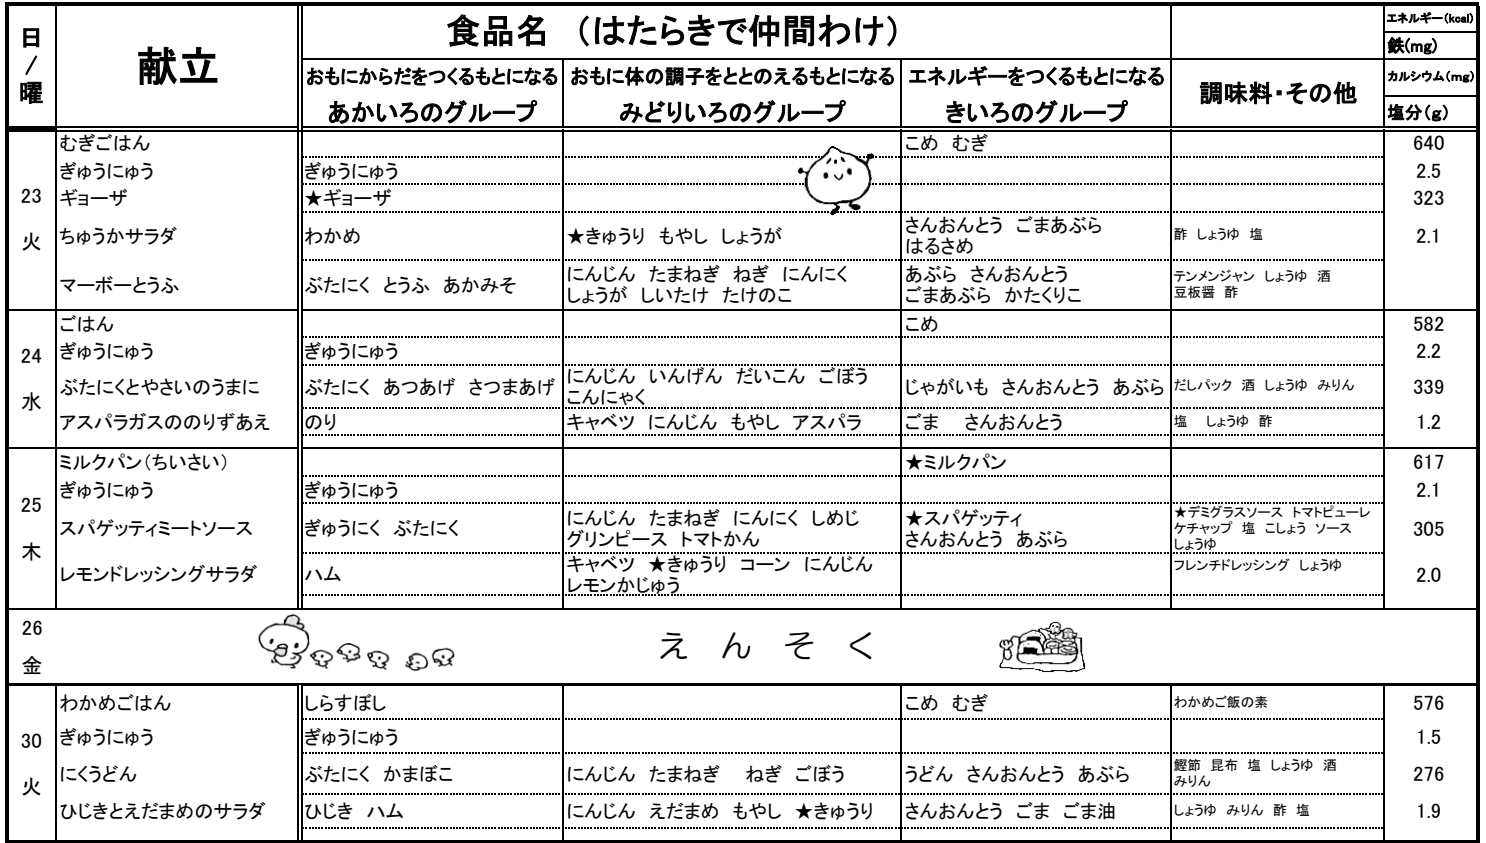 日/曜
献立
食品名　（はたらきで仲間わけ）
エネルギー(kcal)
鉄(mg)
カルシウム(mg)
塩分(g)
おもにからだをつくるもとになる
あかいろのグループ
おもに体の調子をととのえるもとになる
みどりいろのグループ
エネルギーをつくるもとになる
きいろのグループ
調味料・その他
23
火
むぎごはん　こめ　むぎ　640
ぎゅうにゅう　ぎゅうにゅう　2.5
ギョーザ　★ギョーザ　323
ちゅうかサラダ　わかめ　★きゅうり　もやし　しょうが
さんおんとう　ごまあぶら
はるさめ
酢　しょうゆ　塩　2.1
マーボーとうふ　ぶたにく　とうふ　あかみそ
にんじん　たまねぎ　ねぎ　にんにく
しょうが　しいたけ　たけのこ
あぶら　さんおんとう
ごまあぶら　かたくりこ
テンメンジャン　しょうゆ　酒
豆板醤　酢
24
水
ごはん　こめ　582
ぎゅうにゅう　ぎゅうにゅう　2.2
ぶたにくとやさいのうまに　ぶたにく　あつあげ　さつまあげ
にんじん　いんげん　だいこん　ごぼう
こんにゃく
じゃがいも　さんおんとう　あぶら　だしパック　酒　しょうゆ　みりん　339
アスパラガスののりずあえ　のり　キャベツ　にんじん　もやし　アスパラ　ごま　さんおんとう　塩　しょうゆ　酢　1.2
25
木
ミルクパン（ちいさい）　★ミルクパン　617
ぎゅうにゅう　ぎゅうにゅう　2.1
スパゲッティミートソース　ぎゅうにく　ぶたにく
にんじん　たまねぎ　にんにく　しめじ
グリンピース　トマトかん
★スパゲッティ
さんおんとう　あぶら
★デミグラスソース　トマトピューレ
ケチャップ　塩　こしょう　ソース
しょうゆ
305
レモンドレッシングサラダ　ハム
キャベツ　★きゅうり　コーン　にんじん
レモンかじゅう
フレンチドレッシング　しょうゆ　2.0
26
金
えんそく
30
火
わかめごはん　しらすぼし　こめ　むぎ　わかめご飯の素　576
ぎゅうにゅう　ぎゅうにゅう　1.5
にくうどん　ぶたにく　かまぼこ　にんじん　たまねぎ　ねぎ　ごぼう　うどん　さんおんとう　あぶら
鰹節　昆布　塩　しょうゆ　酒
みりん
276
ひじきとえだまめのサラダ　ひじき　ハム　にんじん　えだまめ　もやし　★きゅうり　さんおんとう　ごま　ごま油　しょうゆ　みりん　酢　塩　1.9